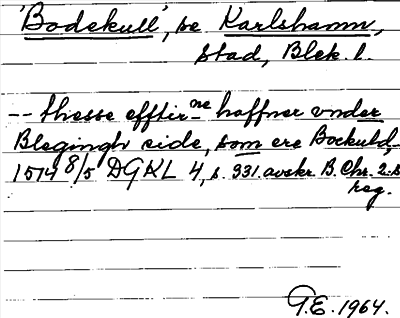 'Bodekull', se Karlshamn,
stad, Blek. l.
-- thesse efftir ne haffner vnder
Blegingh side, som ere Bockuld,-
1514 8/5 DGKL 4, s. 331. avskr. B. Chr. 2:s
reg.
G.E. 1964.